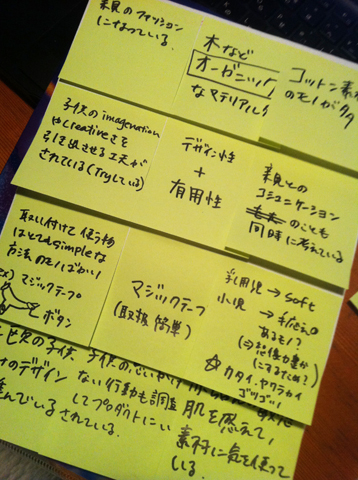 親のファッション
になっている.
木など
オーガニック
なマテリアル
コットン素材
のモノが多
子供のimagenation
やcreativeさを
引き出させる工夫が
されている(Tryしている)
デザイン性
+
有用性
親との
コミュニケーション
のことも
同時に考えている
取り付けて使う物
はとてもsimpleな
方法のモノばかり!
ex) マジックテープ
ボタン
マジックテープ
(取扱簡単)
乳用児 → soft
小児 →
あるモノ?
カタイ、ヤワラカイ
ゴツゴツ!
の子供.
のデザイン
ない行動も調査
してプロダクトにい
されている.
肌を感えて,
素材に気を使って
いる.